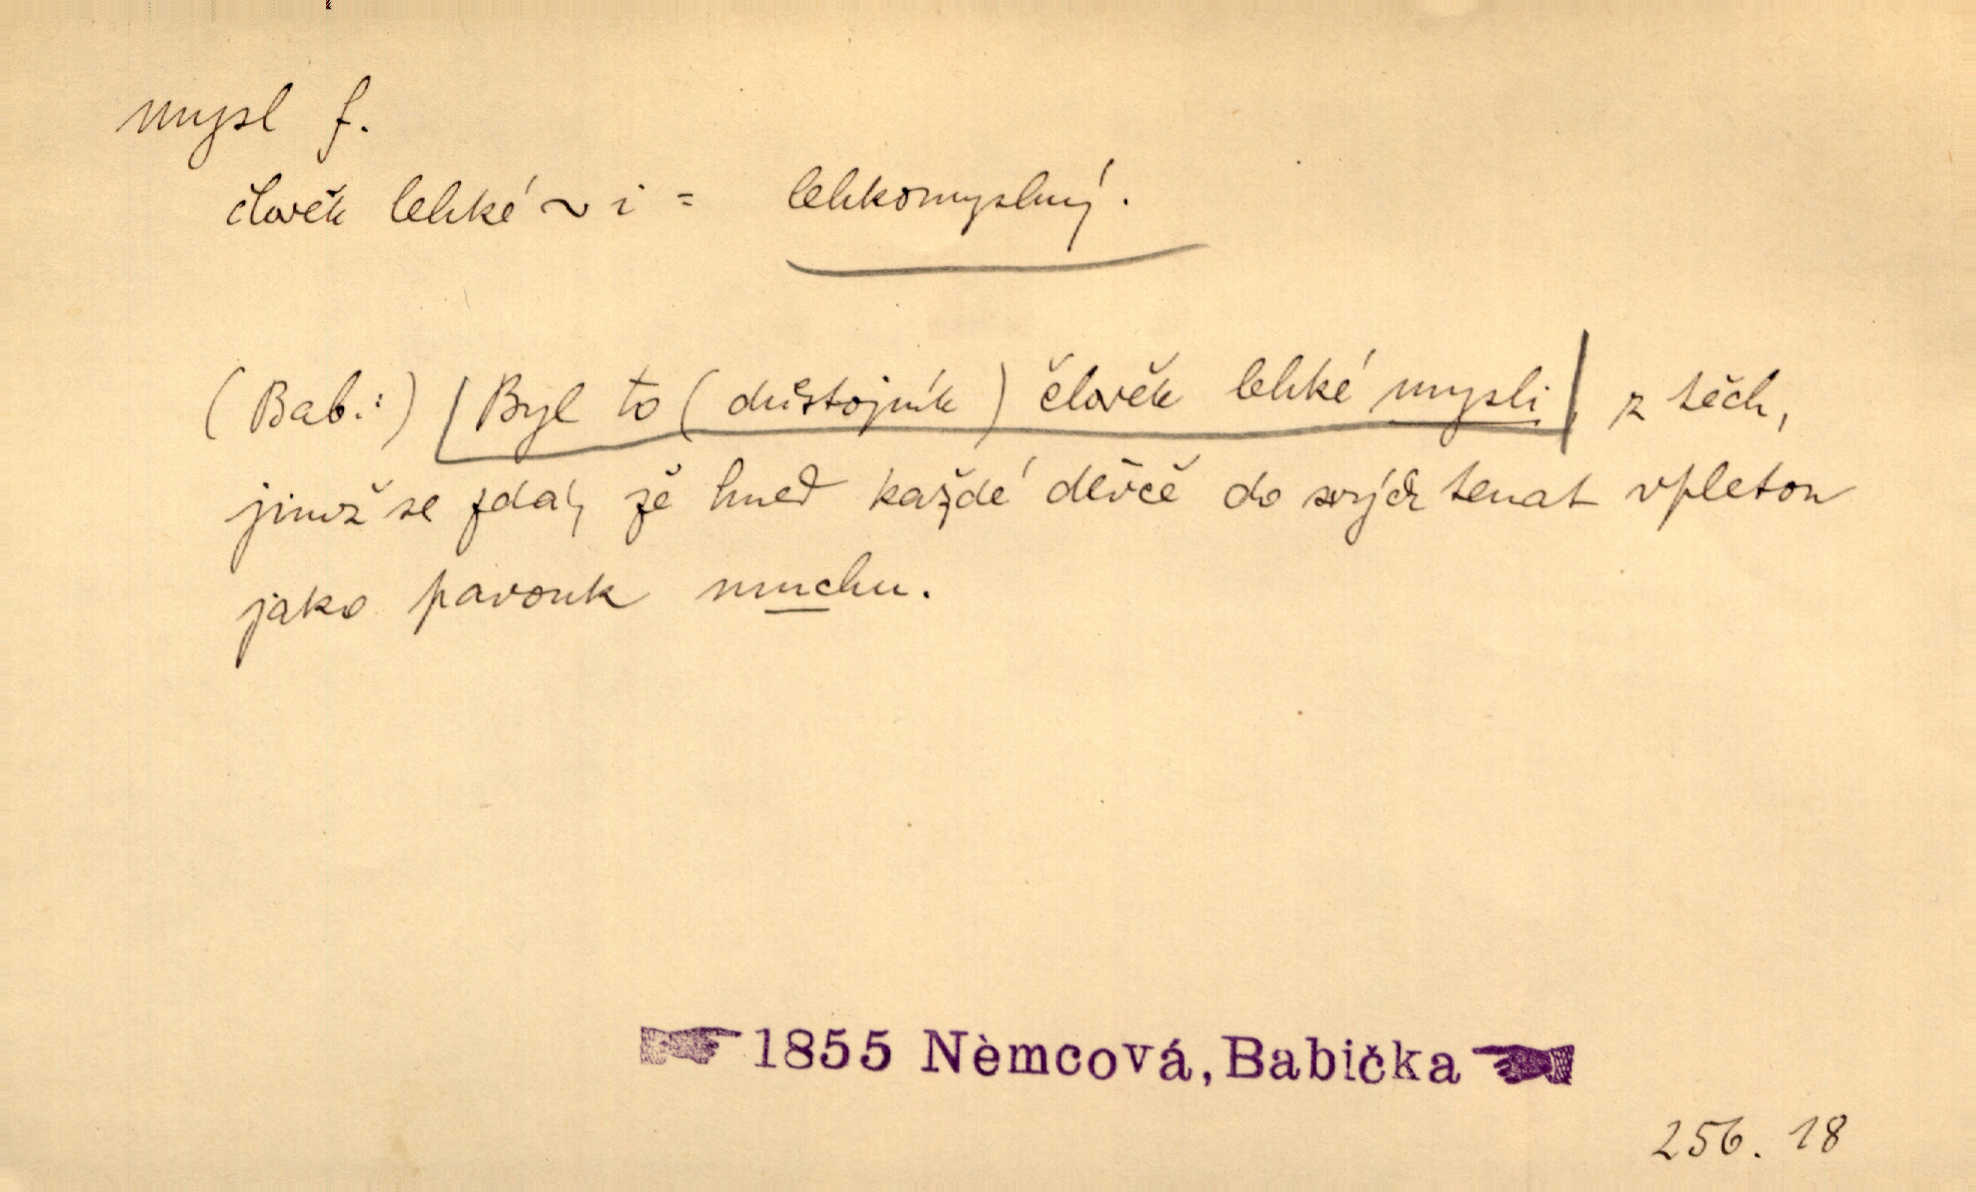 mysl f.
člověk lehké ~ i = lehkomyslný.
(Bab.:) [Byl to (důstojník) člověk lehké mysli] z těch,
jimž se zdá, že hned každé děvče do svých tenat vpletou
jako pavouk mouchu.
☛ 1855 Němcová, Babička ☚
256. 18